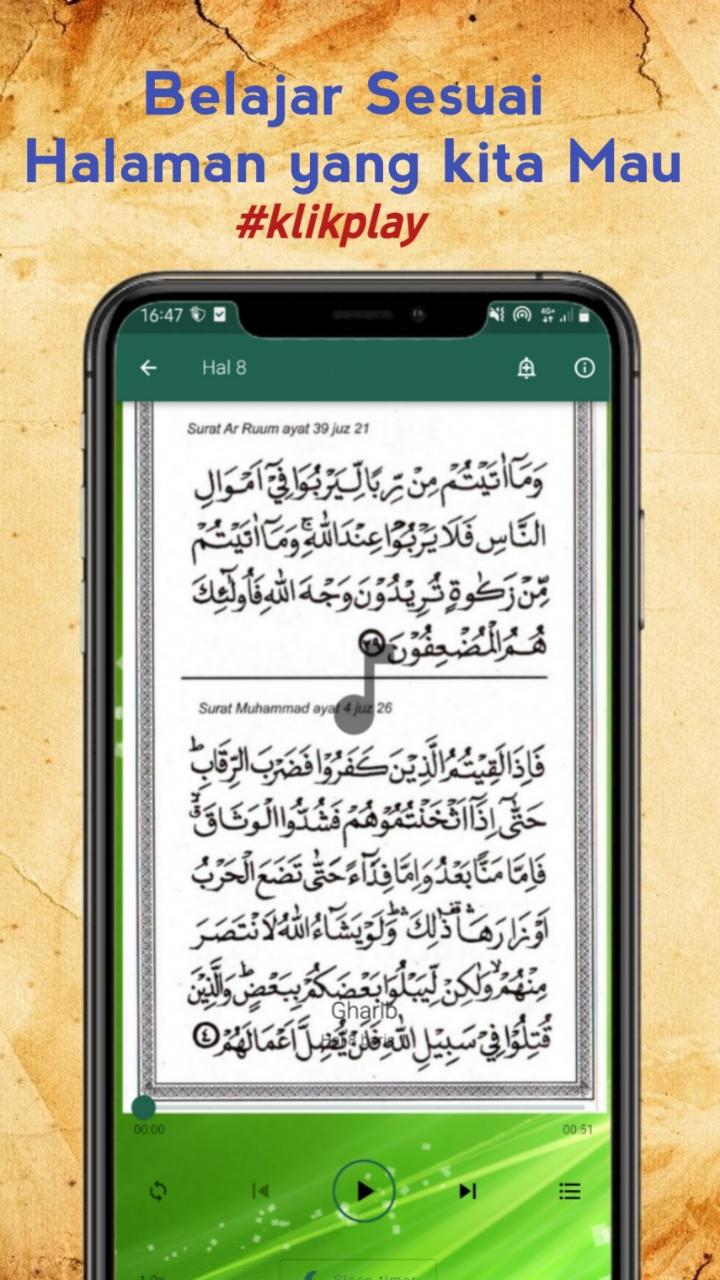 Belajar Sesuai
Halaman yang kita Mau
#klikplay
16:47
4G+
Hal 8
Surat Ar Ruum ayat 39 juz 21
وَمَآ اٰتَيْتُمْ مِنْ رِّبًا لِّيَرْبُوَا۟ فِيْٓ اَمْوَالِ
النَّاسِ فَلَا يَرْبُوْا عِنْدَ اللّٰهِ ۚ وَمَآ اٰتَيْتُمْ
مِّنْ زَكٰوةٍ تُرِيْدُوْنَ وَجْهَ اللّٰهِ فَاُولٰٓئِكَ
هُمُ الْمُضْعِفُوْنَ ٣٩
Surat Muhammad ayat 4 juz 26
فَاِذَا لَقِيْتُمُ الَّذِيْنَ كَفَرُوْا فَضَرْبَ الرِّقَابِ ۗ
حَتّٰىٓ اِذَآ اَثْخَنْتُمُوْهُمْ فَشُدُّوا الْوَثَاقَ ۙ
فَاِمَّا مَنًّا بَعْدُ وَاِمَّا فِدَآءً حَتّٰى تَضَعَ الْحَرْبُ
اَوْزَارَهَا ۛ ذٰلِكَ ۛ وَلَوْ يَشَآءُ اللّٰهُ لَانْتَصَرَ
مِنْهُمْ ۙ وَلٰكِنْ لِّيَبْلُوَا۟ بَعْضَكُمْ بِبَعْضٍ ۗ وَالَّذِيْنَ
Gharib
قُتِلُوْا فِيْ سَبِيْلِ اللّٰهِ فَلَنْ يُّضِلَّ اَعْمَالَهُمْ ٤
00:00
00:51
1.0x
Sleep timer